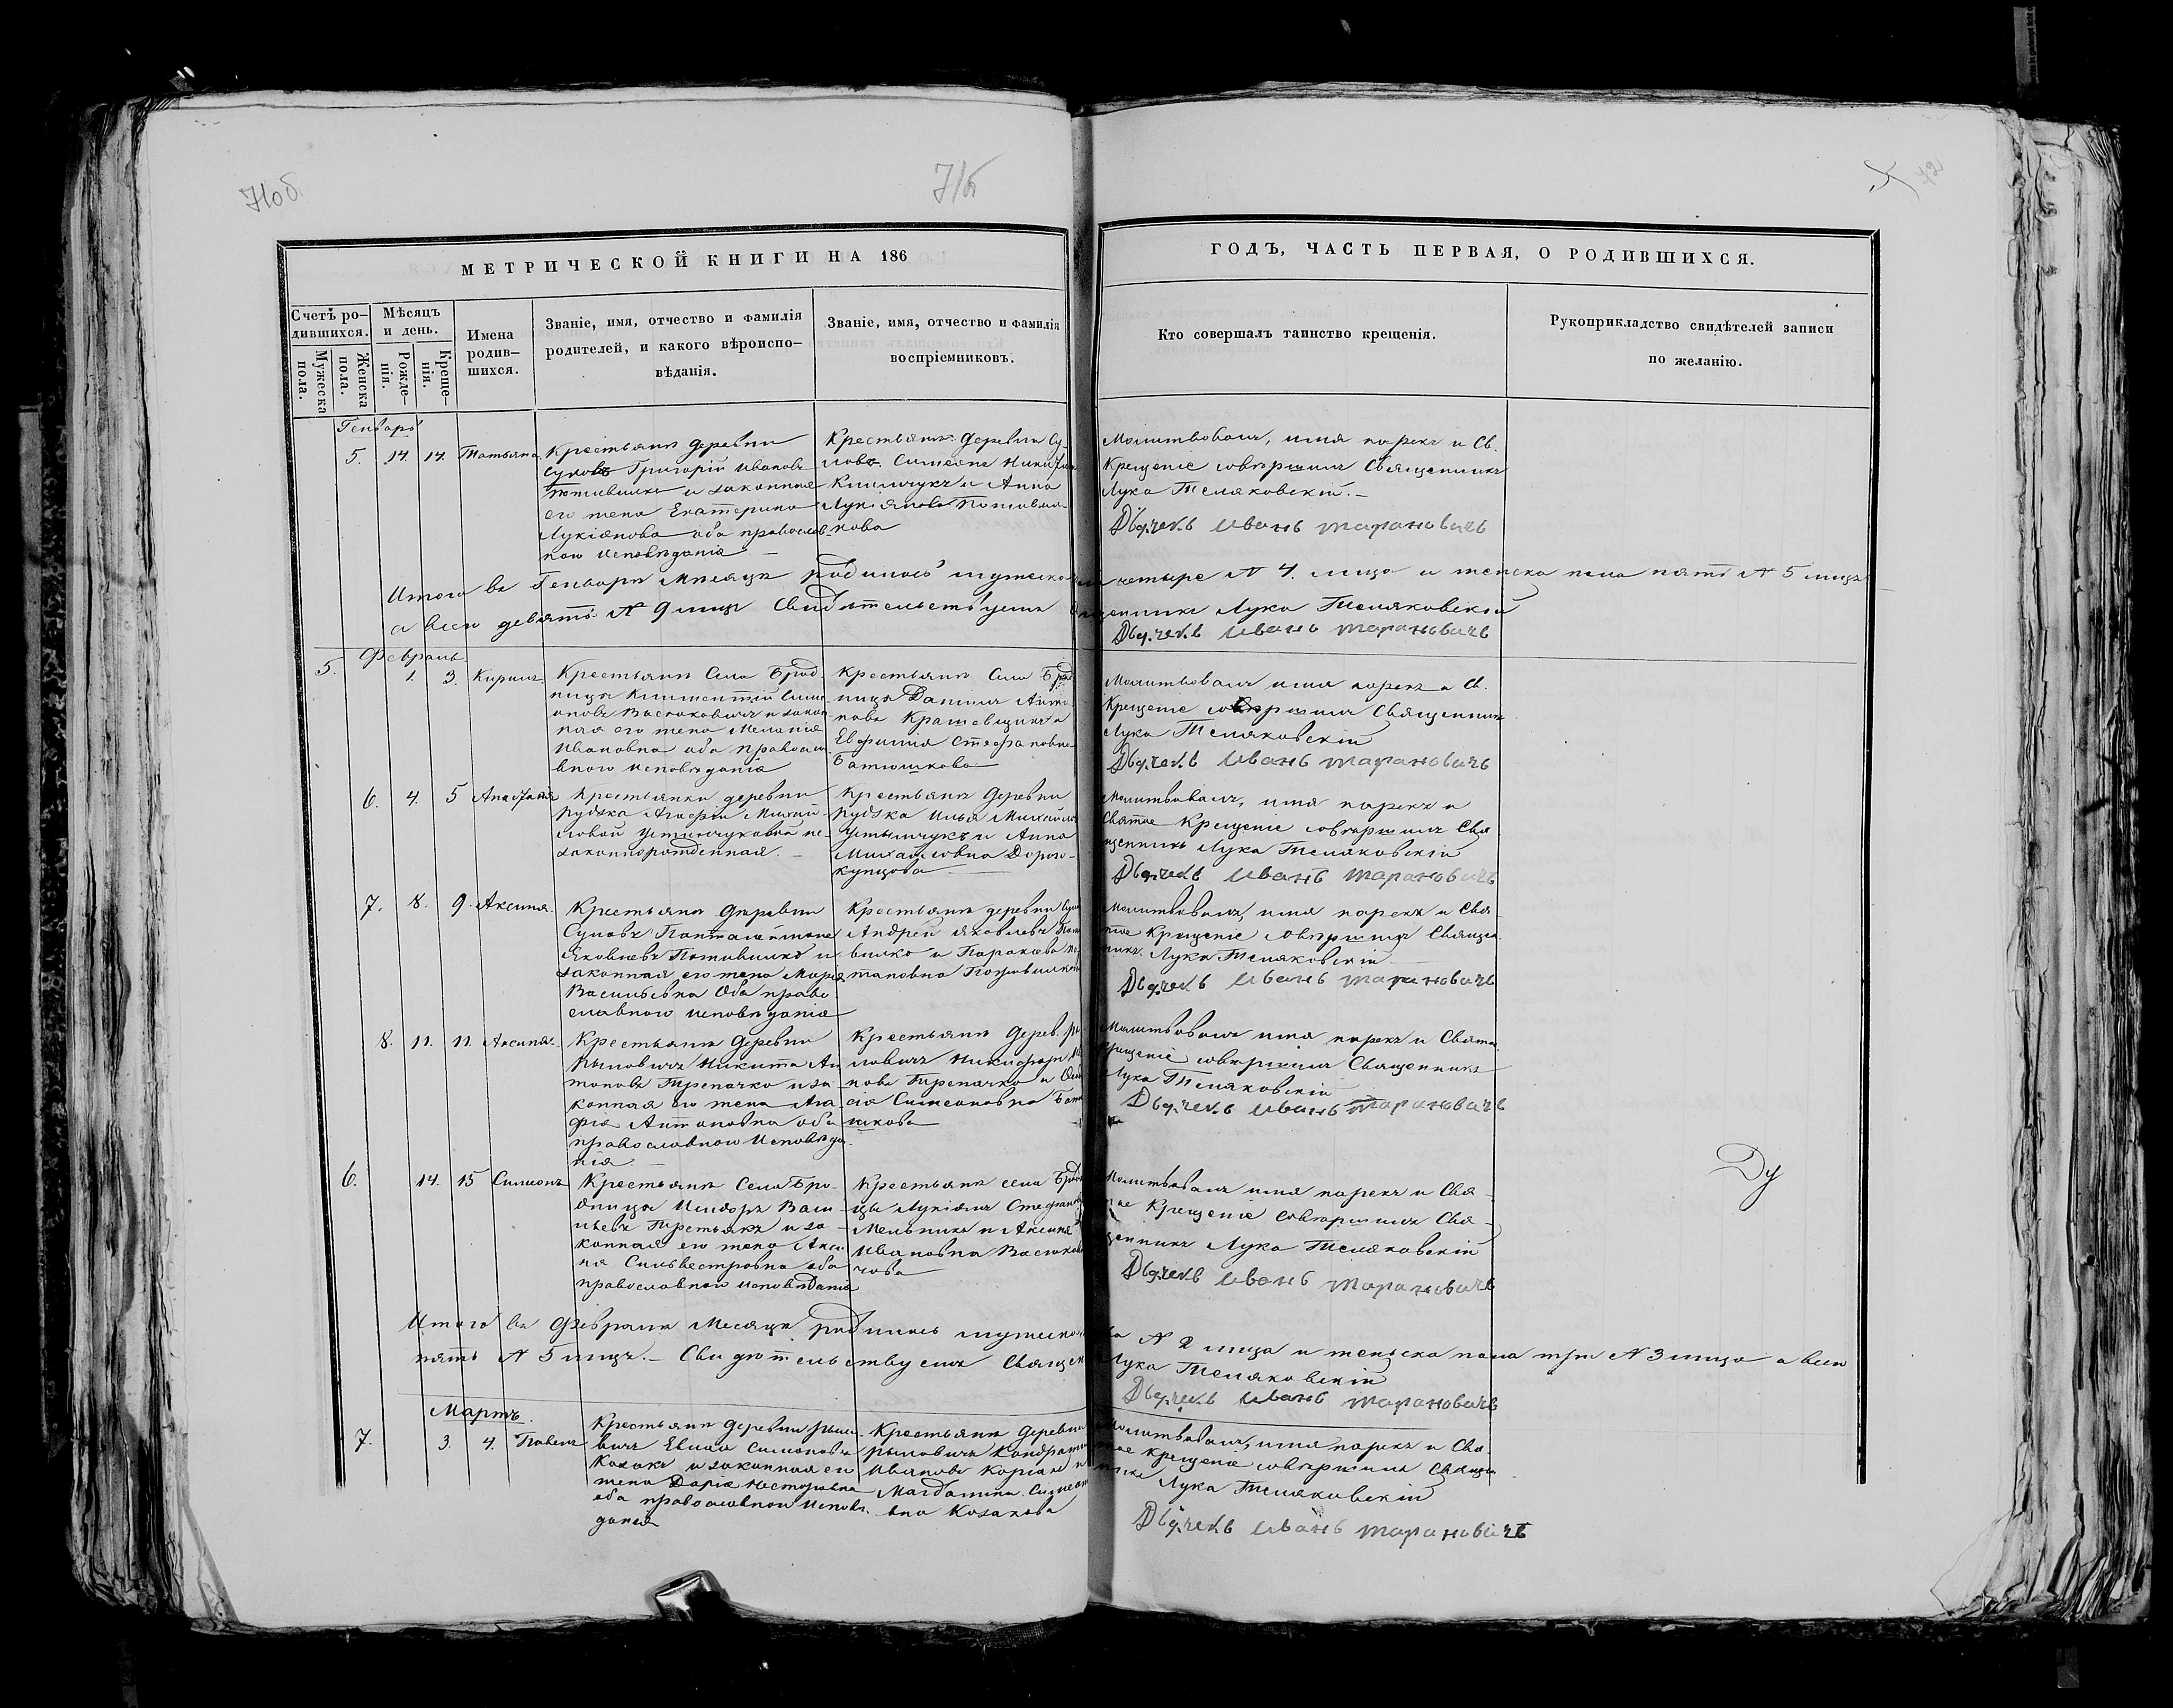 71об.
71б
72
МЕТРИЧЕСКОЙ КНИГИ НА 186
ГОДЪ, ЧАСТЬ ПЕРВАЯ, О РОДИВШИХСЯ.
Счетъ ро-
дившихся.
Мужеска
пола.
Женска
пола.
Мѣсяцъ
и день.
Рожде-
нія.
Креще-
нія.
Имена
родив-
шихся.
Званіе, имя, отчество и фамилія
родителей, и какого вѣроиспо-
вѣданія.
Званіе, имя, отчество и фамилія
воспріемниковъ.
Кто совершалъ таинство крещенія.
Рукоприкладство свидѣтелей записи
по желанію.
Генварь
5. 14. 14. Татьяна
Крестьянинъ деревни
Григорій Ивановъ
и законная
его жена Екатерина
Лукіянова оба православ-
наго исповѣданія
Крестьянинъ деревни Су-
Симеонъ
и Анна
Лукіянова
нова
Молитвовалъ, имя нарекъ и Св.
Крещеніе совершилъ Священникъ
Лука Теляковскій.
Дьячекъ Иванъ Тарановичъ
Итого въ Генварѣ Мѣсяцѣ родилось мужеска четыре N 4. лица и женска пола пять N 5 лицъ
а всего девять N 9 лицъ Свидѣтельствуемъ Лука Теляковскій
Дьячекъ Иванъ Тарановичъ
Февраль
5. 1. 3. Кирилъ
Крестьянинъ Села Брод
ницы Климентій Сим
оновъ Васюковичъ и закон
ная его жена Меланія
Ивановна оба правосла
внаго исповѣданія
Крестьянинъ Села Брод
ницы Даніилъ
новъ и
Евфимія Стефановна
Батюшкова
Молитвовалъ имя нарекъ и Св.
Крещеніе совершилъ Священникъ
Лука Теляковскій
Дьячекъ Иванъ Тарановичъ
6. 4. 5 Анастасія
Крестьянки деревни
Рудка Агафіи Михай-
ловой не-
законнорожденная.
Крестьянинъ деревни
Рудка Илья Михайлов
и Анна
Михайловна Дорого-
купцова
Молитвовалъ, имя нарекъ и
Святое Крещеніе совершилъ Свя
щенникъ Лука Теляковскій
Дьячекъ Иванъ Тарановичъ
7. 8. 9. Аксинія.
Крестьянинъ деревни
Суловъ Панталеймонъ
Яковлевъ и
законная его жена Марія
Васильевна Оба право
славного исповѣданія
Крестьянинъ деревни
Андрей Яковлевъ
и Параскева
Молитвовалъ, имя нарекъ и Свя
тое Крещеніе совершилъ Священ
никъ Лука Теляковскій
Дьячекъ Иванъ Тарановичъ
8. 11. 11. Аксинія.
Крестьянинъ деревни
Рыловичъ Никита Ан
тоновъ Трепачко и за
конная его жена Ага
фія Антоновна оба
православного исповѣда
нія
Крестьянинъ дерев. Ры
ловичъ Никифоръ
новъ Трепачко и
сія Симеоновна Батю
шкова
Молитвовалъ имя нарекъ и Свято
Крещеніе совершилъ Священникъ
Лука Теляковскій
Дьячекъ Иванъ Тарановичъ
6. 14. 15 Симеонъ
Крестьянинъ Села Бро-
дницы Исидоръ Васи
льевъ Третьякъ и за-
конная его жена Акси
нія Сильвестровна оба
православнаго исповѣданія
Крестьянинъ села Брод
цы Лукіянъ Стефановъ
Мельникъ и Аксинія
Ивановна Васюкови
чова
Молитвовалъ имя нарекъ и Свя-
тое Крещеніе совершилъ Свя-
щенникъ Лука Теляковскій
Дьячекъ Иванъ Тарановичъ
Ду
Итого въ Февралѣ Месяцѣ родилось мужеска N 2 лица и женска пола три N 3 лица а всего
пять N 5 лицъ.- Свидѣтельствуемъ Священ Лука Теляковскій
Дьячекъ Иванъ Тарановичъ
Мартъ.
7. 3. 4. Павелъ
Крестьянинъ деревни Рыло-
вичъ Симоновъ
Козакъ и законная его
жена Дарія Несторовна
оба православного исповѣ
данія
Крестьянинъ деревни
Рыловичъ Кондратъ
Ивановъ и
Магдалина Симео
вна Козакова
Молитвовалъ, имя нарекъ и Свя-
тое Крещеніе совершилъ Священ
никъ Лука Теляковскій
Дьячекъ Иванъ Тарановичъ